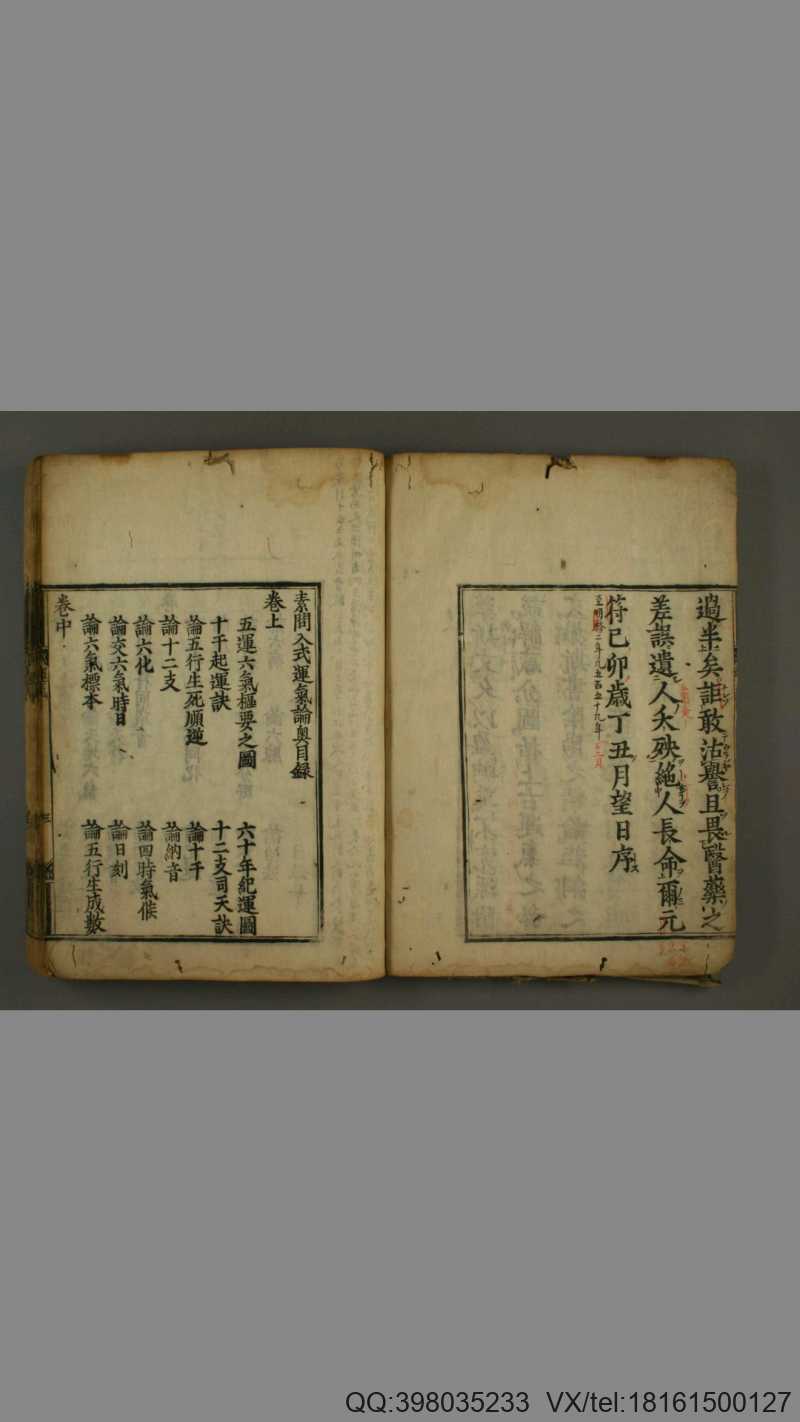 過半矣詎敢沽譽且畏醫藥之
差誤遺人夭殃絕人長命爾元
符己卯歲丁丑月望日序
素問入式運氣論奧目錄
卷上
五運六氣樞要之圖 六十年紀運圖
十干起運訣 十二支司天訣
論五行生死順逆 論十干
論十二支 論納音
論六化 論四時氣候
論交六氣時日 論日刻
論六氣標本 論五行生成數
卷中
QQ:398035233 VX/tel:18161500127